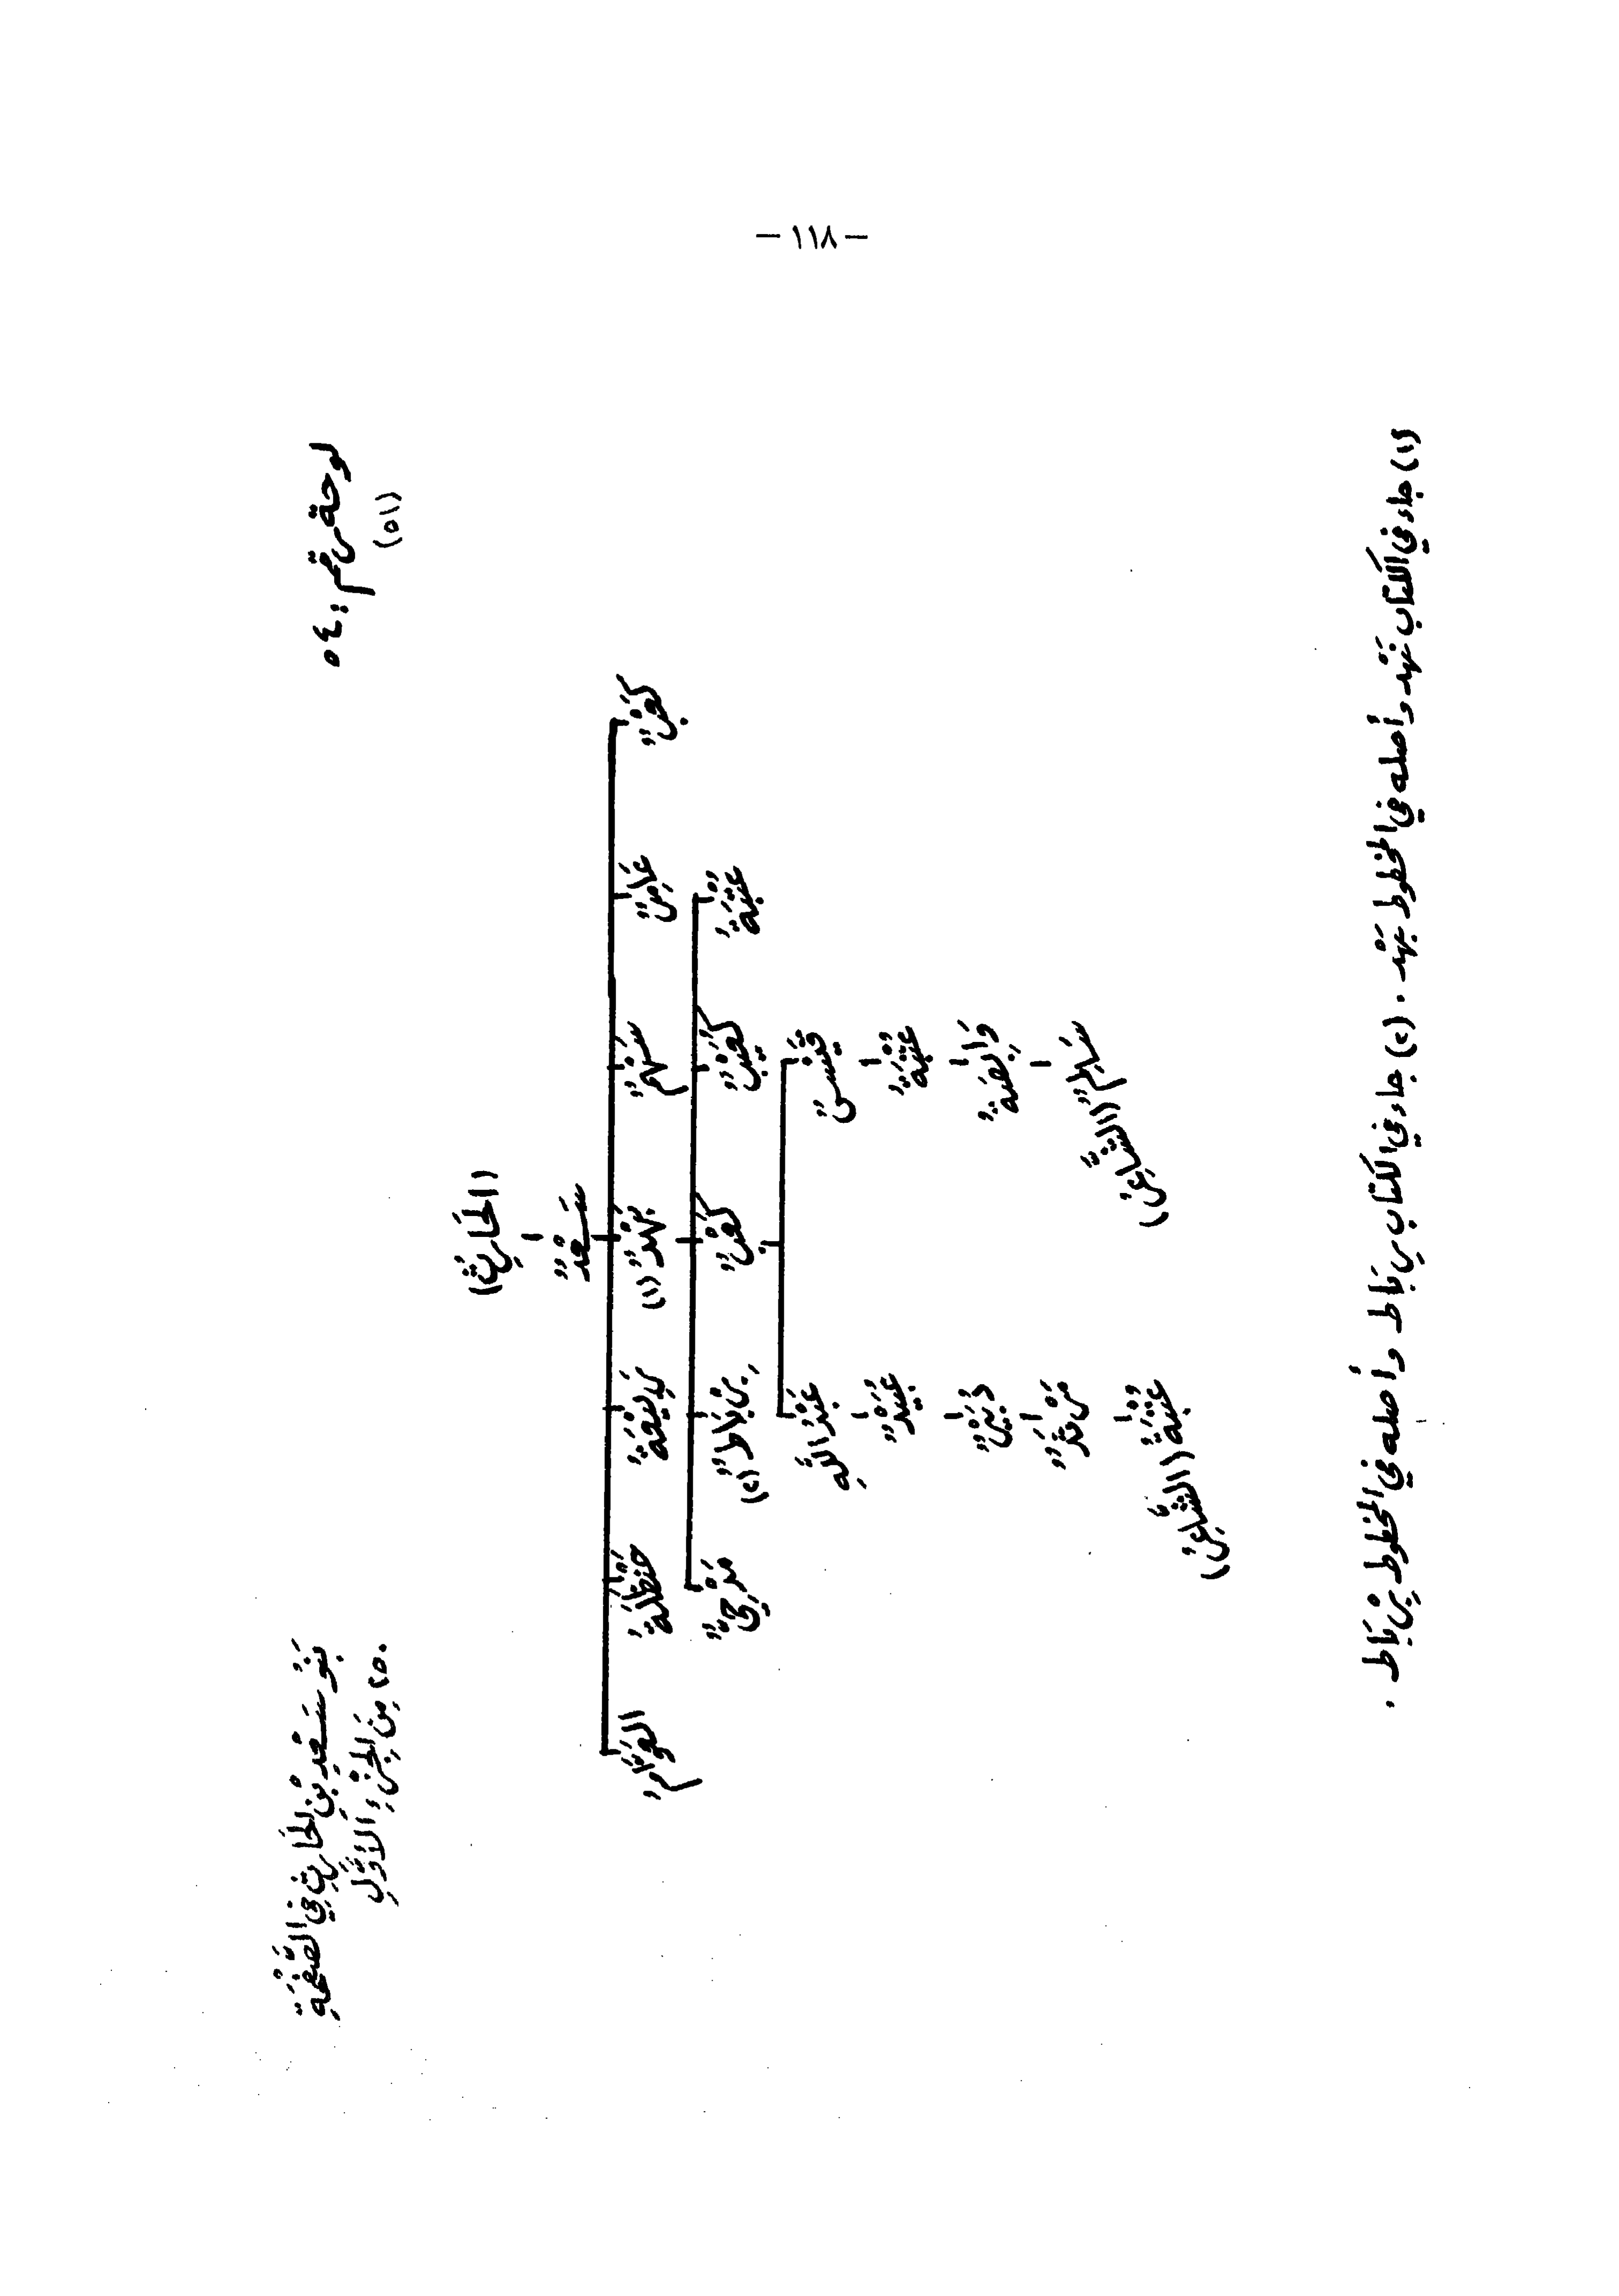 - ١١٨ -
لوحة رقم : ٥٤
(٥١)
بَنُو سَعْدِ بْنِ الحَارِثِ فِي الصَّفْحَةِ
٢٥٠ مِنَ الجُزْءِ الأَوَّلِ
(الحَارِثُ)
سَعْدٌ
كَعْبٌ عَامِرٌ سَهْمٌ بَهْدٌ (١) رَبِيْعَةُ حَنْظَلَةُ العَوَّامُ
عُتْبَةُ كُعَيْبٌ كَعْبٌ بِرْبَاطٌ (٢) مَدْحِيٌّ
قَيْسٌ عَبْدُ اللَّهِ
عُتْبَةُ عُبَيْدٌ
وَابِصَةُ دُبَيْرٌ
سَالِمٌ (الشَّاعِرُ) مَرْثَدٌ
عُتْبَةُ (الشَّاعِرُ)
(١) جاء في الكتاب نَهْد وأصله في المخطوط بَهْد . (٢) جاء في الكتاب برباط وأصله في المخطوط بِرْبَاط .